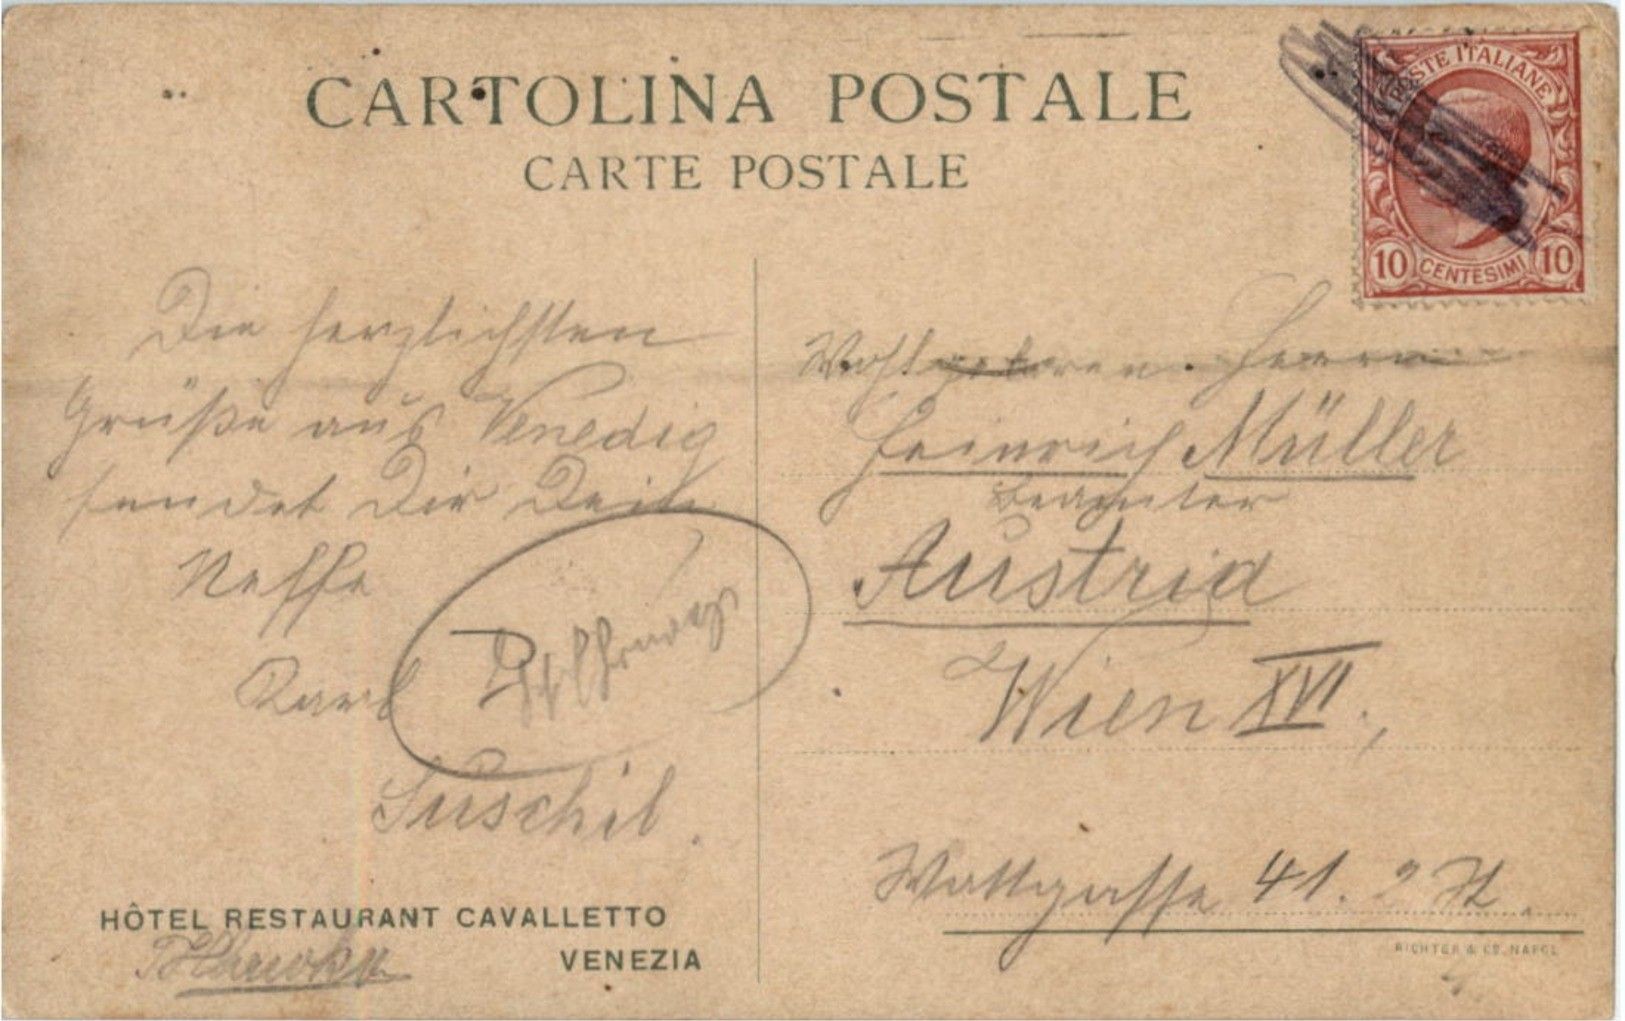 CARTOLINA POSTALE
CARTE POSTALE
POSTE ITALIANE
10 CENTESIMI 10
Die herzlichsten
Grüße aus Venedig
sendet Dir Dein
Neffe
Karl
Suschil.
HÔTEL RESTAURANT CAVALLETTO
VENEZIA
Wohlgeboren Herrn
Heinrich Müller
Beamter
Austria
Wien XVI.,
Wattgasse 41. 2
RICHTER & CO. NAPOLI